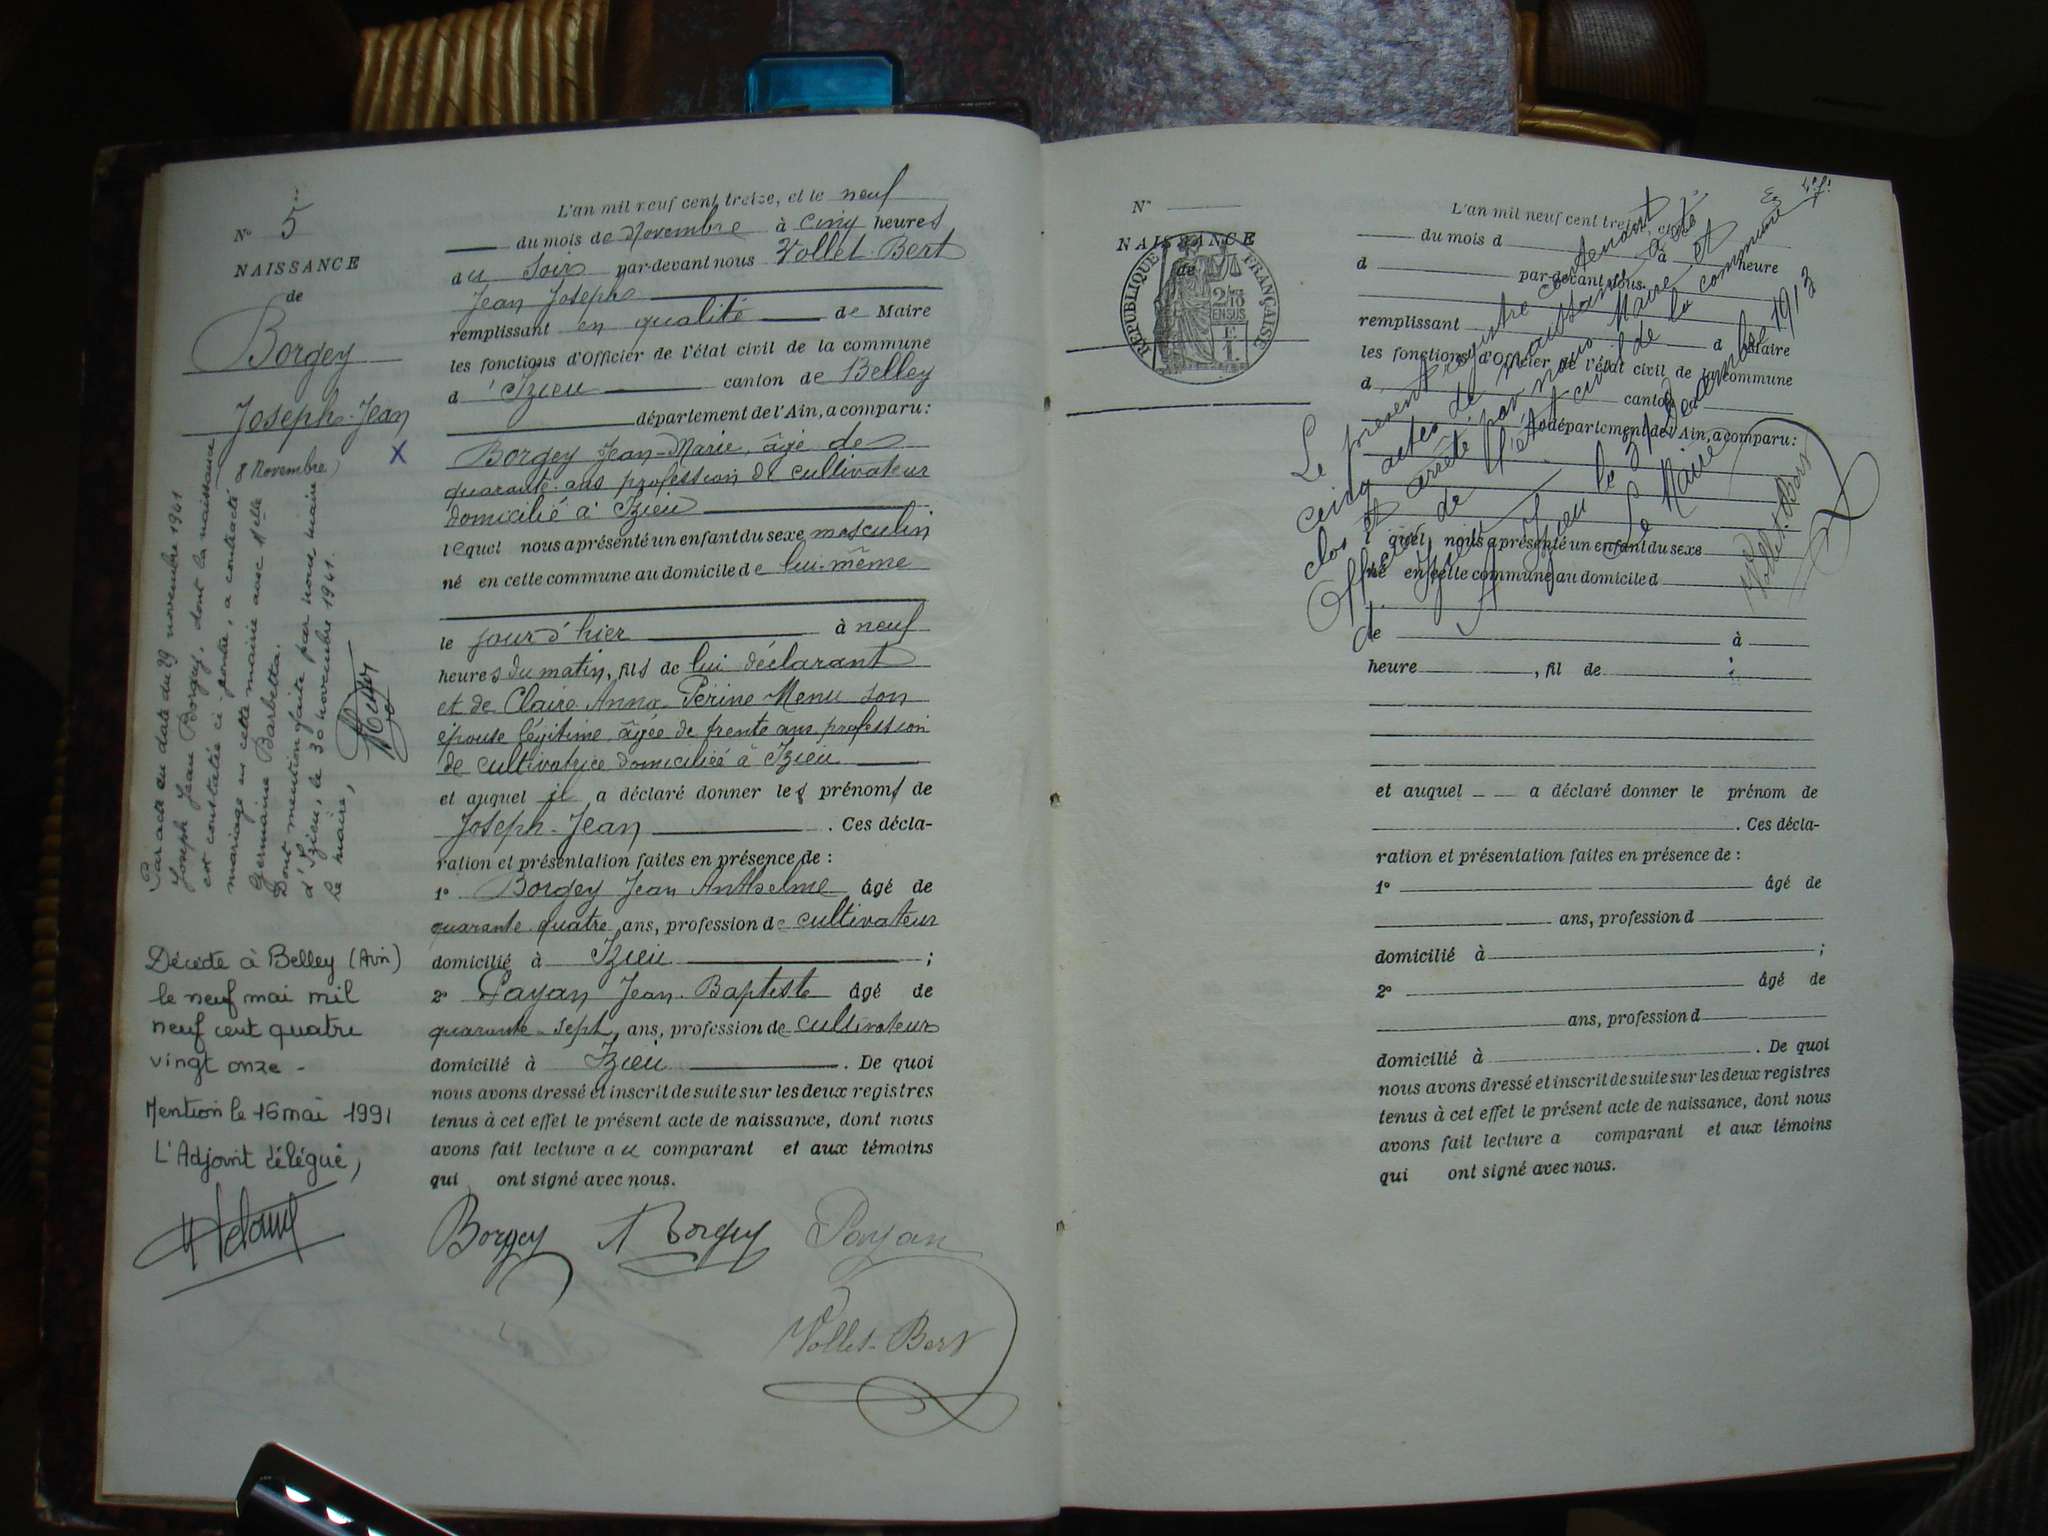 N° 5
NAISSANCE
de
Borgey
Joseph-Jean
8 Novembre)
X
Par acte en date du 29 novembre 1941
Joseph Jean Borgey, dont la naissance
est constatée ci-contre, a contracté
mariage en cette mairie avec Melle
Germaine Barbetta.
Dont mention faite par nous maire
d'Izieu, le 30 novembre 1941.
Le maire,
Décédé à Belley (Ain)
le neuf mai mil
neuf cent quatre
vingt onze -
Mention le 16 mai 1991
L'Adjoint délégué,
L'an mil neuf cent treize, et le neuf
du mois de Novembre à cinq heures
du soir par-devant nous Vollet-Bert
Jean Joseph
remplissant en qualité de Maire
les fonctions d'Officier de l'état civil de la commune
d'Izieu canton de Belley
département de l'Ain, a comparu:
Borgey Jean-Marie, âgé de
quarante ans profession de cultivateur
domicilié à Izieu
lequel nous a présenté un enfant du sexe masculin
né en cette commune au domicile de lui-même
le jour d'hier à neuf
heures du matin, fils de lui déclarant
et de Claire Anna Perine Menu son
épouse légitime, âgée de trente ans profession
de cultivatrice domiciliée à Izieu
et auquel il a déclaré donner les prénoms de
Joseph-Jean. Ces décla-
ration et présentation faites en présence de :
1° Borgey Jean Anthelme âgé de
quarante quatre ans, profession de cultivateur
domicilié à Izieu ;
2° Payan Jean-Baptiste âgé de
quarante-sept ans, profession de cultivateur
domicilié à Izieu. De quoi
nous avons dressé et inscrit de suite sur les deux registres
tenus à cet effet le présent acte de naissance, dont nous
avons fait lecture au comparant et aux témoins
qui ont signé avec nous.
Borgey A Borgey Payan
Vollet-Bert
N°
NAISSANCE
de
RÉPUBLIQUE FRANÇAISE
2/10
EN SUS
1 F
L'an mil neuf cent treize, et le
du mois d à heure
d par-devant nous
remplissant d Maire
les fonctions d'Officier de l'état civil de la commune
d canton
département de l'Ain, a comparu:
quel nous a présenté un enfant du sexe
né en cette commune au domicile d
de à
heure , fil de ;
et auquel a déclaré donner le prénom de
. Ces décla-
ration et présentation faites en présence de :
1° âgé de
ans, profession d
domicilié à ;
2° âgé de
ans, profession d
domicilié à . De quoi
nous avons dressé et inscrit de suite sur les deux registres
tenus à cet effet le présent acte de naissance, dont nous
avons fait lecture a comparant et aux témoins
qui ont signé avec nous.
Le présent registre contenant
cinq actes de naissance a été
clos et arrêté par nous Maire et
Officier de l'état civil de la commune
d'Izieu
A Izieu le 31 Décembre 1913
Le Maire
Vollet-Bert